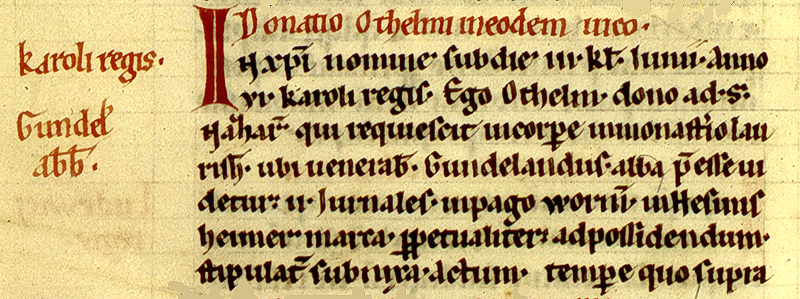 Donatio Othelmi in eodem uico.
karoli regis.
Gundel abb̄.
In xpi nomine sub die iii kł. Iunii. Anno
vi karoli regis. Ego Othelm dono ad. s.
Nazar̄. qui requiescit in corpe in monastio lau
rish. ubi uenerab̄. Gundelandus. abba p̄esse ui
detur. ii. Iurnales. in pago worm̄. in Hesinis
heimer marca. ꝑpetualiter ad possidendum.
stipulat̄ subnixa. actum. tempe quo supra